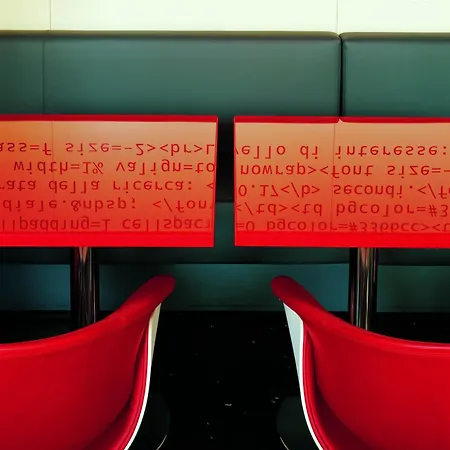 ass=f size=-2><br>L
width=1% valign=to
rata della ricerca: <
diale.&nbsp; </fon
llpadding=1 cellspaci
vello di interesse:
nowrap><font size=-
0.17</b> secondi.</f
</td><td bgcolor=#3
=0 bgcolor=#3366cc><t